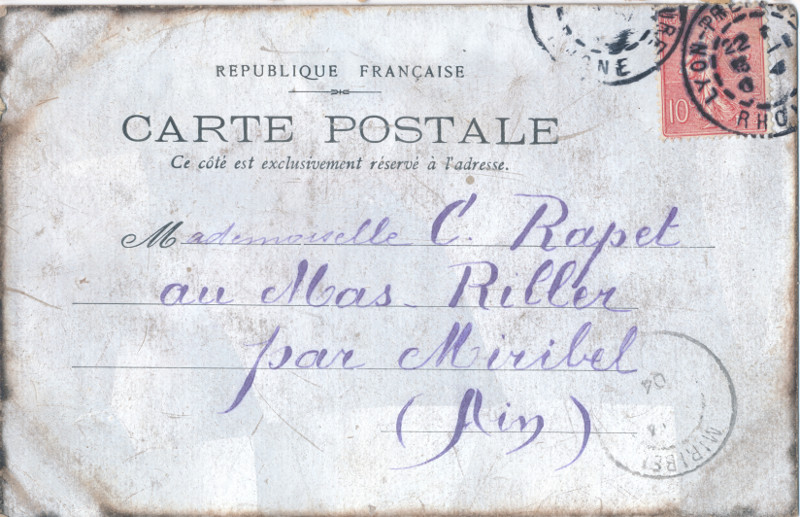 REPUBLIQUE FRANÇAISE
CARTE POSTALE
Ce côté est exclusivement réservé à l'adresse.
Mademoiselle C. Rapet
au Mas-Riller
par Miribel
(Ain)
10
LYON-
RHO
22
MIRIBEL
04